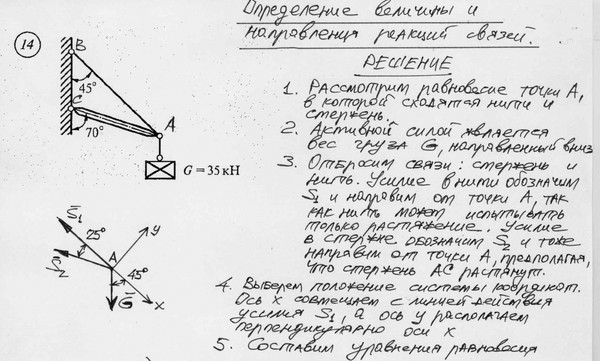 Определение величины и
направления реакций связей.
РЕШЕНИЕ
14
B
45°
C
70°
A
G = 35 кН
1. Рассмотрим равновесие точки А,
в которой сходятся нити и
стержень.
2. Активной силой является
вес груза G, направленный вниз
3. Отбросим связи: стержень и
нить. Усилие в нити обозначим
S₁ и направим от точки А, так
как нить может испытывать
только растяжение. Усилие
в стержне обозначим S₂ и тоже
направим от точки А, предполагая,
что стержень АС растянут.
4. Выберем положение системы координат.
Ось x совмещаем с линией действия
усилия S₁, а ось y располагаем
перпендикулярно оси x
5. Составим уравнения равновесия
S̄₁
y
25°
S̄₂
A
45°
Ḡ
x